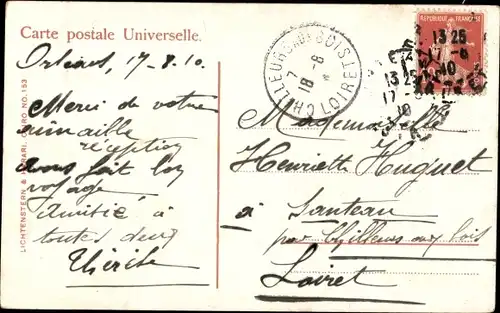 Carte postale Universelle.
Orléans, 17-8.10.
Merci de votre
aimable
réception
avons fait bon
voyage
Amitié à
toutes deux
Thérèse
LICHTENSTERN & HARARI. CAIRO NO. 153
CHILLEURS AUX BOIS LOIRET
7
18-8
RÉPUBLIQUE FRANÇAISE
13 25
-8
10
13 25
17
10
Mademoiselle
Henriette Huguet
à Santeau
par Chilleurs aux bois
Loiret